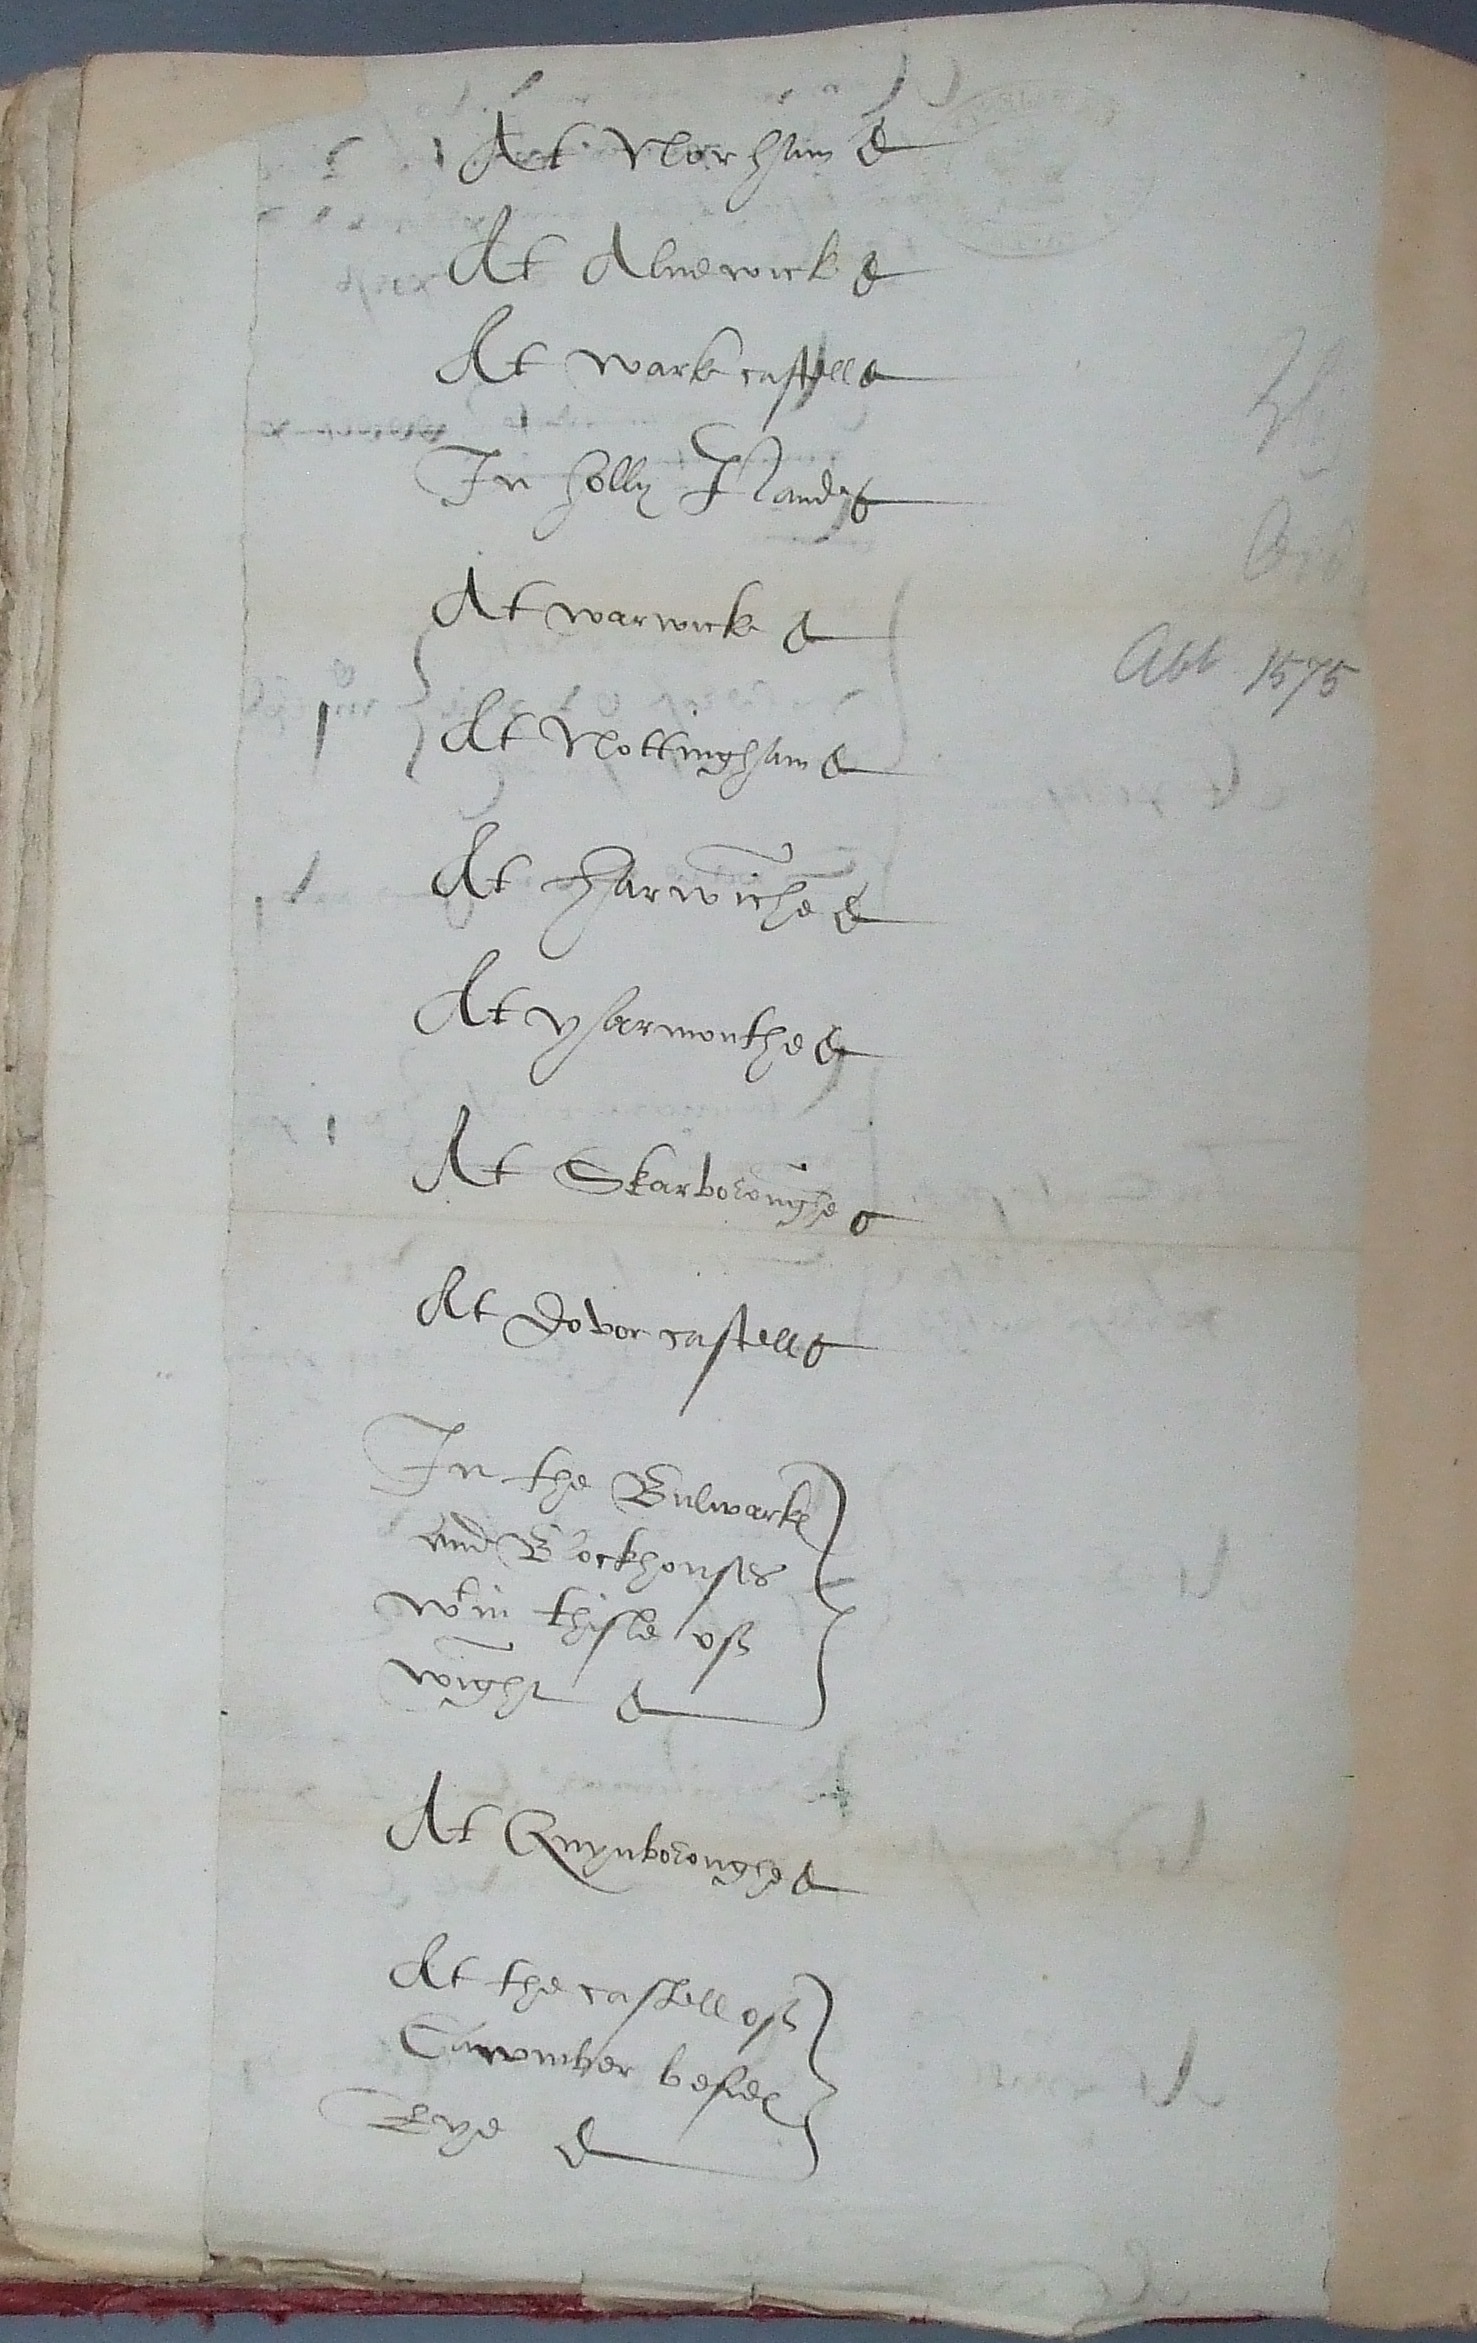 At Norham
At Alnewick
At wark castell
In holly Iland
At warwick
Abt 1575
At Nottingham
At Harwiche
At yharmouthe
At Skarboroughe
At Dovor castell
In the Bulwarkes
and Blockhouses
wtin thisle of
wight
At Quynboroughe
At the castell of
besides
Rye